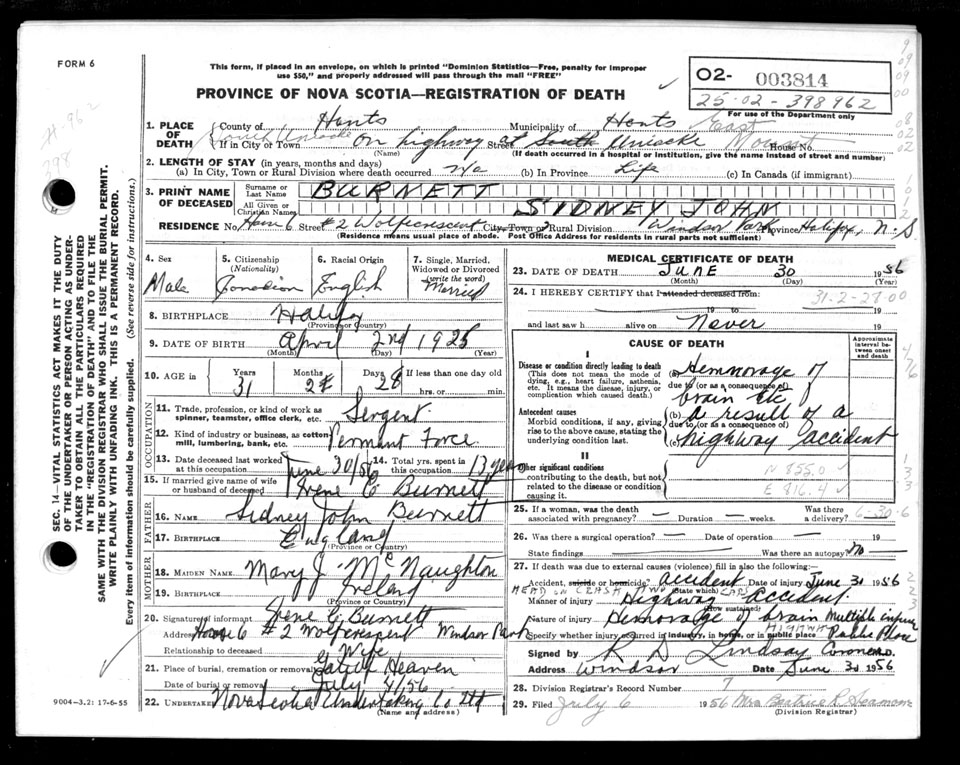 FORM 6
This form, if placed in an envelope, on which is printed "Dominion Statistics—Free, penalty for improper
use $50," and properly addressed will pass through the mail "FREE"
PROVINCE OF NOVA SCOTIA—REGISTRATION OF DEATH
O2- 003814
25-02-398962
For use of the Department only
1. PLACE OF DEATH
County of Hants Municipality of Hants East
If in City or Town South Uniacke On highway Street at South Uniacke House No.
(Name) (If death occurred in a hospital or institution, give the name instead of street and number)
2. LENGTH OF STAY (in years, months and days)
(a) In City, Town or Rural Division where death occurred (b) In Province Life (c) In Canada (if immigrant)
3. PRINT NAME OF DECEASED
Surname or Last Name BURNETT
All Given or Christian Names SIDNEY JOHN
RESIDENCE No. Street #2 City, Town or Rural Division Windsor Park Province Halifax, N.S.
(Residence means usual place of abode. Post Office Address for residents in rural parts not sufficient)
4. Sex Male
5. Citizenship (Nationality) Canadian
6. Racial Origin English
7. Single, Married, Widowed or Divorced (write the word) Married
8. BIRTHPLACE Halifax
(Province or Country)
9. DATE OF BIRTH April 2nd 1925
(Month) (Day) (Year)
10. AGE in Years 31 Months 2 Days 28 If less than one day old
hrs. or min.
OCCUPATION
11. Trade, profession, or kind of work as spinner, teamster, office clerk, etc. Sergent
12. Kind of industry or business, as cotton mill, lumbering, bank, etc. Permant Force
13. Date deceased last worked at this occupation June 30/56
14. Total yrs. spent in this occupation 13 years
15. If married give name of wife or husband of deceased Irene C Burnett
FATHER
16. NAME Sidney John Burnett
17. BIRTHPLACE England
(Province or Country)
MOTHER
18. MAIDEN NAME Mary J. McNaughton
19. BIRTHPLACE Ireland
(Province or Country)
20. Signature of informant Irene C Burnett
Address House 6 #2 Windsor Park
Relationship to deceased Wife
21. Place of burial, cremation or removal Gate of Heaven
Date of burial or removal July 4/56
22. UNDERTAKER Nova Scotia Undertaking Co Ltd
(Name and address)
9004—3.2: 17-6-55
MEDICAL CERTIFICATE OF DEATH
23. DATE OF DEATH JUNE 30 1956
(Month) (Day) (Year)
24. I HEREBY CERTIFY that I attended deceased from: 31-2-28-00
19 to 19
and last saw h alive on Never 19
CAUSE OF DEATH
Approximate interval between onset and death
I
Disease or condition directly leading to death
(This does not mean the mode of dying, e.g., heart failure, asthenia, etc. It means the disease, injury, or complication which caused death.)
Hemmorage of
due to (or as a consequence of)
brain etc
Antecedent causes
Morbid conditions, if any, giving rise to the above cause, stating the underlying condition last.
(b) a result of a
due to (or as a consequence of)
highway accident
II
Other significant conditions
contributing to the death, but not related to the disease or condition causing it.
N 855.0
E 816.4
25. If a woman, was the death associated with pregnancy? — Duration — weeks. Was there a delivery? 6-30-6
26. Was there a surgical operation? — Date of operation — 19
State findings Was there an autopsy? No
27. If death was due to external causes (violence) fill in also the following:
Accident, suicide or homicide? accident Date of injury June 30 1956
(State which)
HEAD ON CRASH TWO CARS
Manner of injury Highway accident.
(How sustained)
Nature of injury Hemorage of brain Multiple injury
HIGHWAY
Specify whether injury occurred in industry, in home, or in public place Public Place
Signed by R D Lindsay Coroner M.D.
Address Windsor Date June 30 1956
28. Division Registrar's Record Number 7
29. Filed July 6 1956 Mrs Beatrice R Seamone
(Division Registrar)
SEC. 14—VITAL STATISTICS ACT MAKES IT THE DUTY
OF THE UNDERTAKER OR PERSON ACTING AS UNDER-
TAKER TO OBTAIN ALL THE PARTICULARS REQUIRED
IN THE "REGISTRATION OF DEATH" AND TO FILE THE
SAME WITH THE DIVISION REGISTRAR WHO SHALL ISSUE THE BURIAL PERMIT.
WRITE PLAINLY WITH UNFADING INK. THIS IS A PERMANENT RECORD.
Every item of information should be carefully supplied. (See reverse side for instructions.)